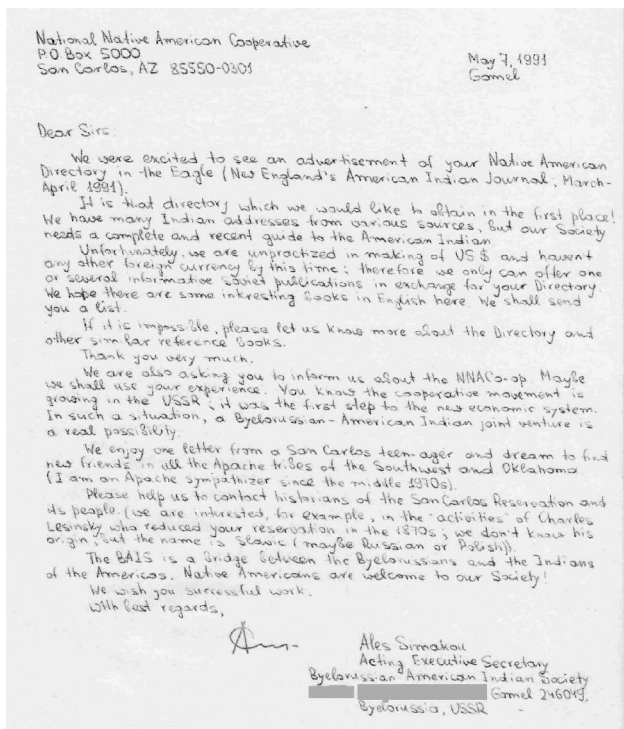 National Native American Cooperative
P.O. Box 5000
San Carlos, AZ 85550-0301
May 7, 1991
Gomel
Dear Sirs:
We were excited to see an advertisement of your Native American
Directory in the Eagle (New England's American Indian Journal, March-
April 1991).
It is that directory which we would like to obtain in the first place!
We have many Indian addresses from various sources, but our Society
needs a complete and recent guide to the American Indian.
Unfortunately, we are unpractized in making of US $ and haven't
any other foreign currency by this time; therefore we only can offer one
or several informative Soviet publications in exchange for your Directory.
We hope there are some intresting books in English here. We shall send
you a list.
If it is impossible, please let us know more about the Directory and
other similar reference books.
Thank you very much.
We are also asking you to inform us about the NNACo-op. Maybe
we shall use your experience. You know the cooperative movement is
growing in the USSR; it was the first step to the new economic system.
In such a situation, a Byelorussian-American Indian joint venture is
a real possibility.
We enjoy one letter from a San Carlos teen-ager and dream to find
new friends in all the Apache tribes of the Southwest and Oklahoma
(I am an Apache sympathizer since the middle 1970s).
Please help us to contact historians of the San Carlos Reservation and
its people. (We are interested, for example, in the "activities" of Charles
Lesinsky who reduced your reservation in the 1870s; we don't know his
origin, but the name is Slavic (maybe Russian or Polish)).
The BAIS is a bridge between the Byelorussians and the Indians
of the Americas. Native Americans are welcome to our Society!
We wish you successful work.
With best regards,
Ales Simakou
Acting Executive Secretary
Byelorussian American Indian Society
Gomel 246049,
Byelorussia, USSR